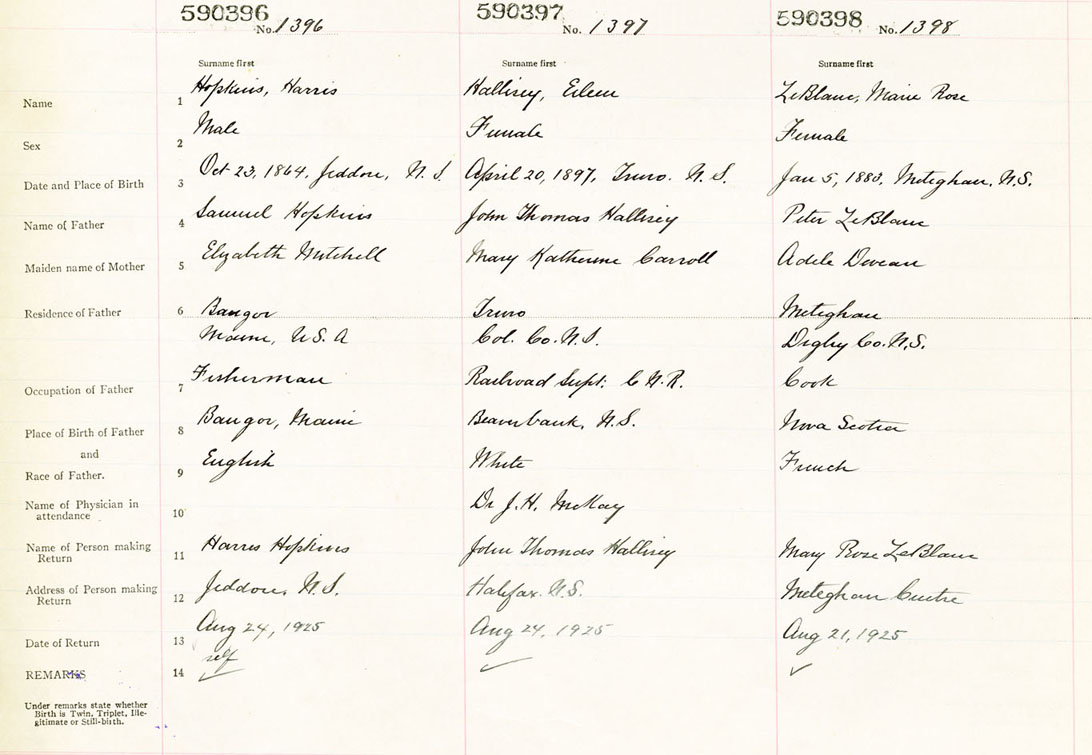 590396 590397 590398
No. 1396 No. 1397 No. 1398
Surname first Surname first Surname first
Name 1 Hopkins, Harris Hallisey, Eileen LeBlanc, Marie Rose
Sex 2 Male Female Female
Date and Place of Birth 3 Oct 23, 1864, Jeddore, N.S. April 20, 1897, Truro. N.S. Jan 5, 1883, Meteghan, N.S.
Name of Father 4 Samuel Hopkins John Thomas Hallisey Peter LeBlanc
Maiden name of Mother 5 Elizabeth Mitchell Mary Katherine Carroll Adele Deveau
Residence of Father 6 Bangor Truro Meteghan
Maine, U.S.A Col. Co. N.S. Digby Co. N.S.
Occupation of Father 7 Fisherman Railroad Supt. C.N.R. Cook
Place of Birth of Father 8 Bangor, Maine Beaverbank, N.S. Nova Scotia
and
Race of Father. 9 English White French
Name of Physician in
attendance 10 Dr J.H. McKay
Name of Person making
Return 11 Harris Hopkins John Thomas Hallisey Mary Rose LeBlanc
Address of Person making
Return 12 Jeddore, N.S. Halifax. N.S. Meteghan Centre
Date of Return 13 Aug 24, 1925 Aug 24, 1925 Aug 21, 1925
REMARKS 14 self
Under remarks state whether
Birth is Twin, Triplet, Ille-
gitimate or Still-birth.